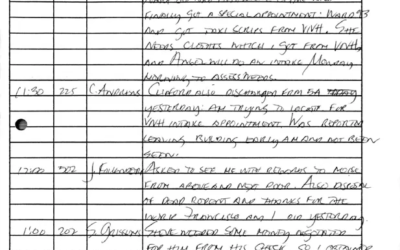 FINALLY GOT A SPECIAL APPOINTMENT: WARD 93
AND GOT TAXI SCRIPS FROM VIVH. SHE
NEEDS CLOTHES WHICH I GOT FROM VIVH,
AND ANGEL WILL DO AN INTAKE MONDAY
MORNING TO ASSESS NEEDS.
11:30 225 C. ANDREWS DISCHARGED FROM
YESTERDAY. AM TRYING TO LOCATE FOR
VIVH INTAKE APPOINTMENT. WAS REPORTED
LEAVING BUILDING EARLY AM AND NOT BEEN
SEEN.
12:00 502 J. ASKED TO SEE ME WITH REGARDS TO NOISE
FROM ABOVE AND NEXT DOOR. ALSO
OF AND THANKS FOR THE
WORK FRANCISCO AND I DID YESTERDAY.
1:00 207 G. STEVE NEEDED SOME MONEY NEGOTIATED
FOR HIM FROM HIS CHECK, SO I OBTAINED